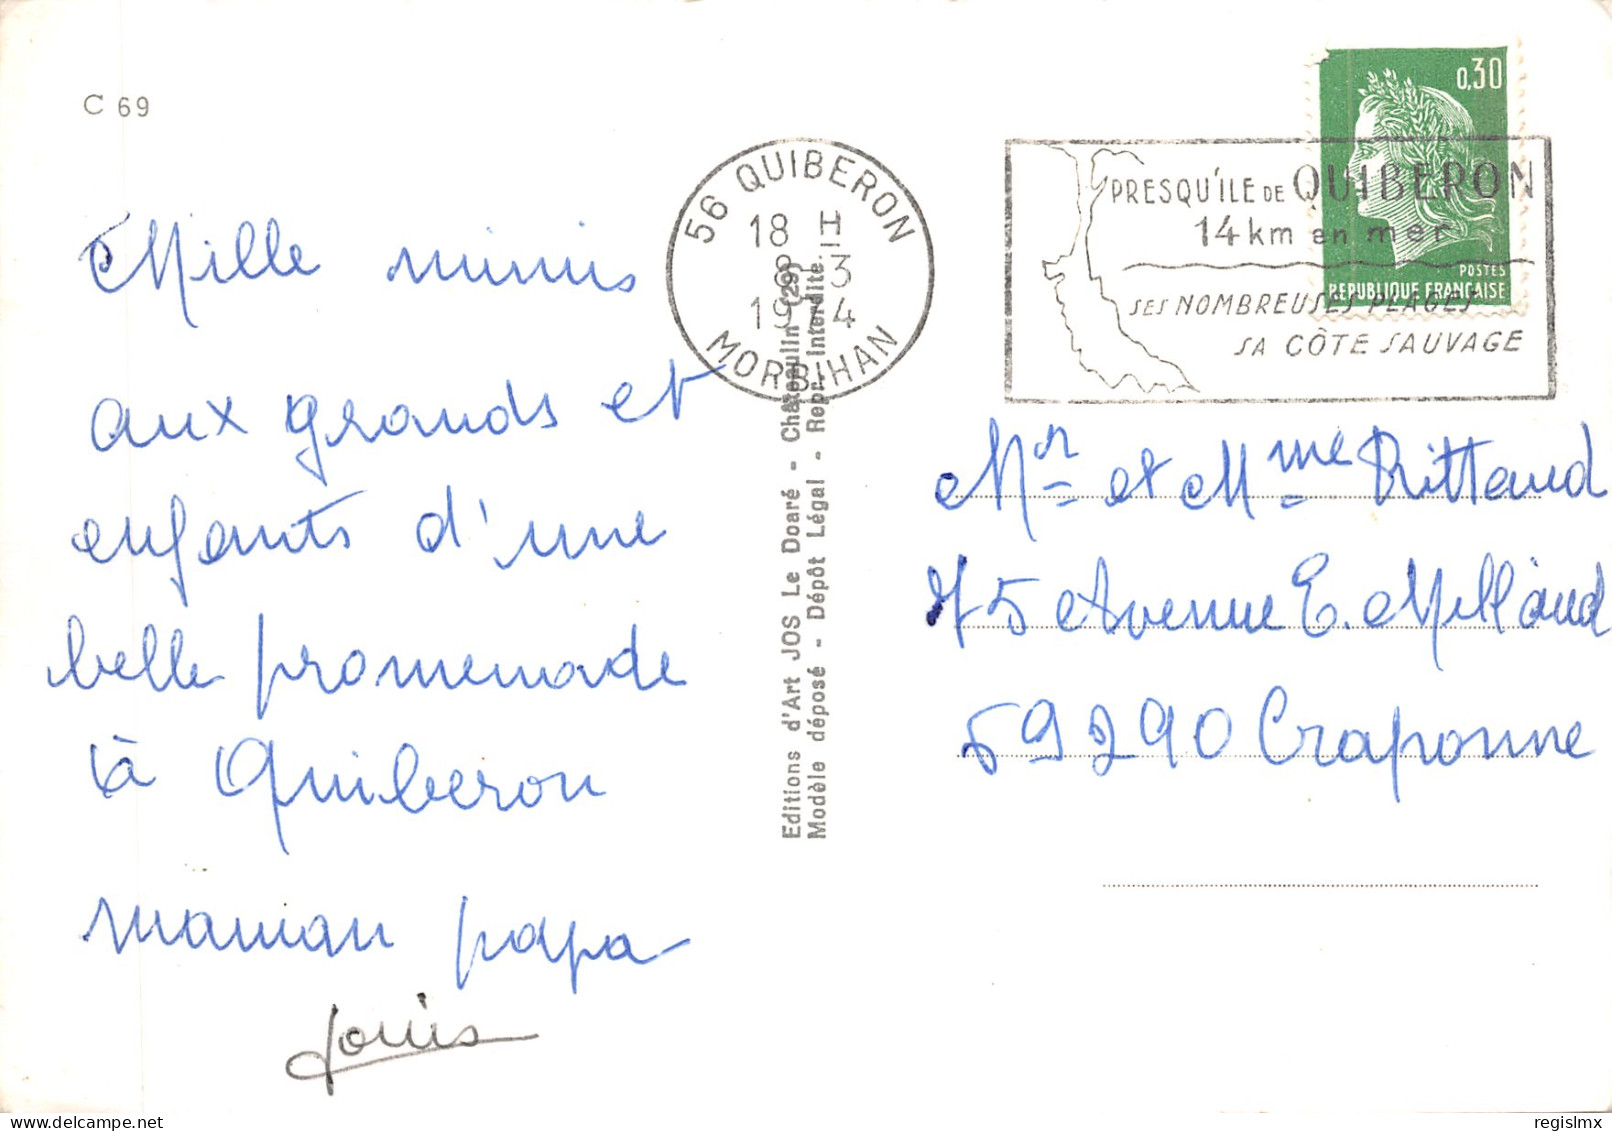 C 69
Mille mimis
aux grands et
enfants d'une
belle promenade
à Quiberon
maman papa
Louis
56 QUIBERON
18 H
8 - 3
1974
MORBIHAN
Editions d'Art JOS Le Doaré - Châteaulin (29)
Modèle déposé - Dépôt Légal - Repr. Interdite.
PRESQU'ILE DE QUIBERON
14 km en mer
SES NOMBREUSES PLAGES
SA CÔTE SAUVAGE
0,30
POSTES
REPUBLIQUE FRANÇAISE
Mr et Mme Rittaud
75 Avenue E. Millaud
69290 Craponne
regislmx